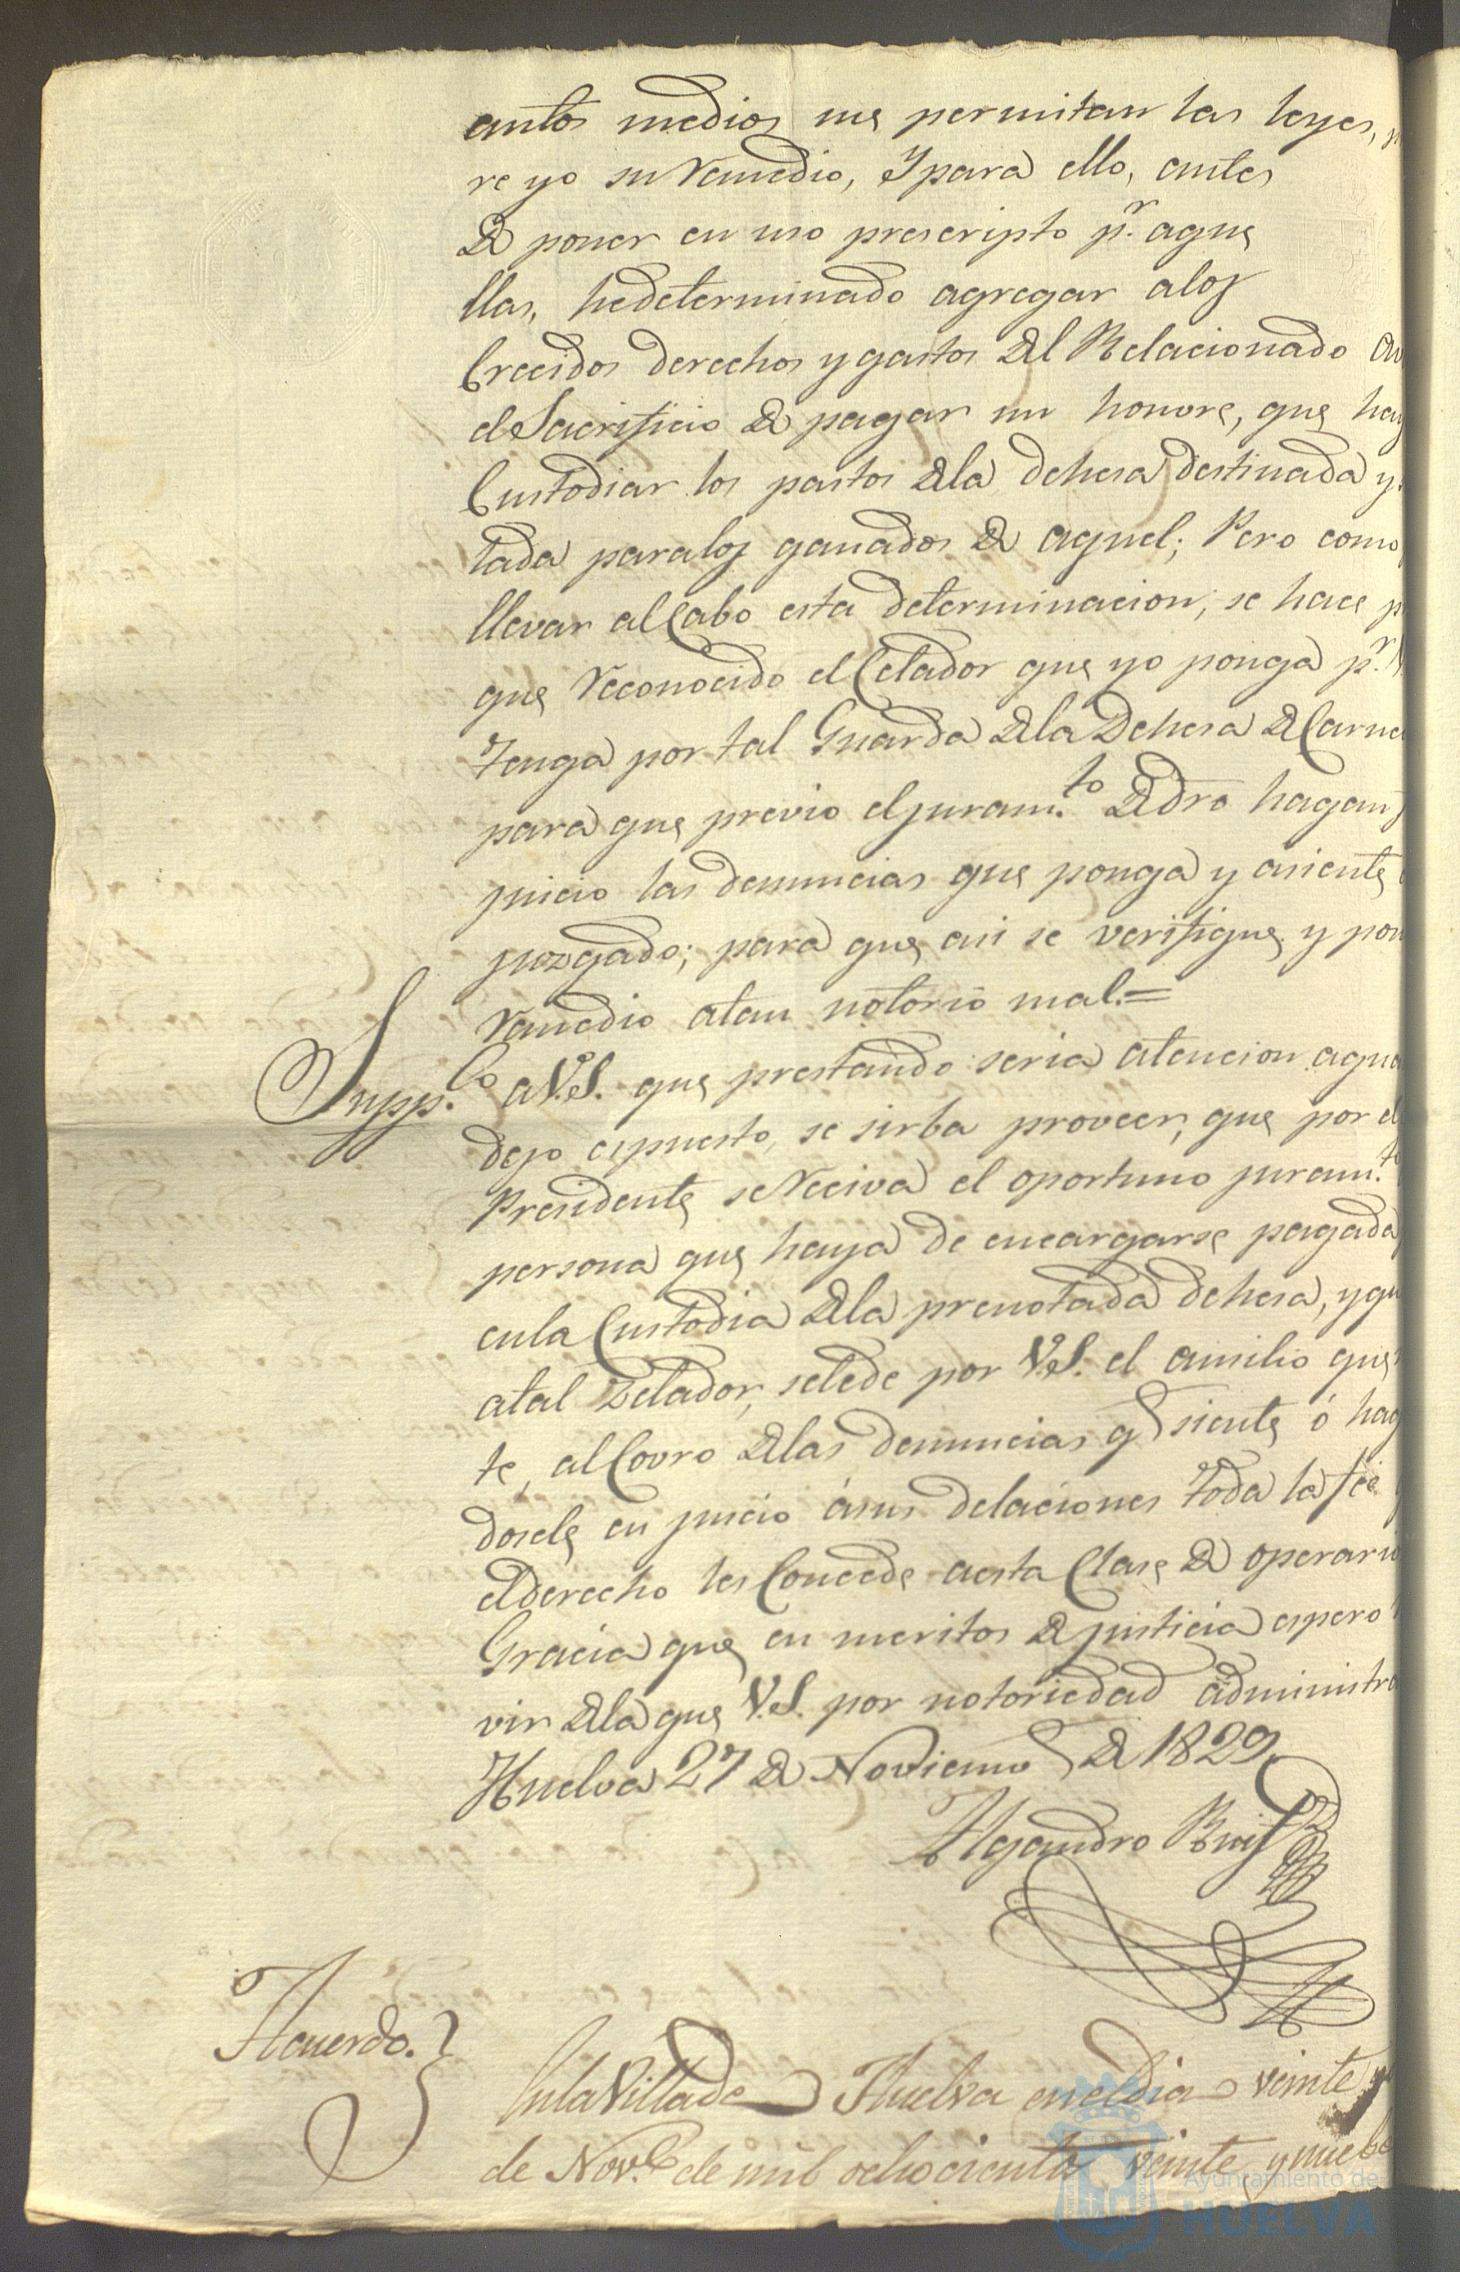 antos medios me permitan las leyes,
re yo su remedio, Y para ello, antes
de poner en uso prescripto pr. aque
llas, hedeterminado agregar alos
Crecidos derechos y gastos del Relacionado
el Sacrificio de pagar un honvre, que hay
Custodiar los pastos dela dehesa destinada y
tada paralos ganados de aquel; Pero como
llevar alCabo esta determinacion, se hace
que reconocido el Celador que yo ponga pr.
Tenga por tal Guarda dela Dehesa deCarne
para que previo el juram.to dedro hagan
juicio las denuncias que ponga y asiente
juzgado; para que asi se verifique, y pon
remedio atan notorio mal.=
Supp.co a V.S. que prestando seria atencion aqua
dejo espuesto, se sirba proveer, que por el
Presidente seReciva el oportuno juram.to
persona que haya de encargarse pagada
enla Custodia dela prenotada dehesa, yqu
atal Zelador, selede por V.S. el ausilio que
te, alCovro delas denuncias q siente ó hag
dosele en juicio ásus delaciones toda la fée
elderecho les Concede aesta Clase de operario
Gracia que en meritos de justicia espero
vir dela que V.S. por notoriedad administra
Huelva 27 de Noviem de 1829
Alejandro Ruiz
Acuerdo.
Enla Villa de Huelva eneldia veinte y
de Nov.e de mil ochocientos veinte y nuebe
Ayuntamiento de
HUELVA